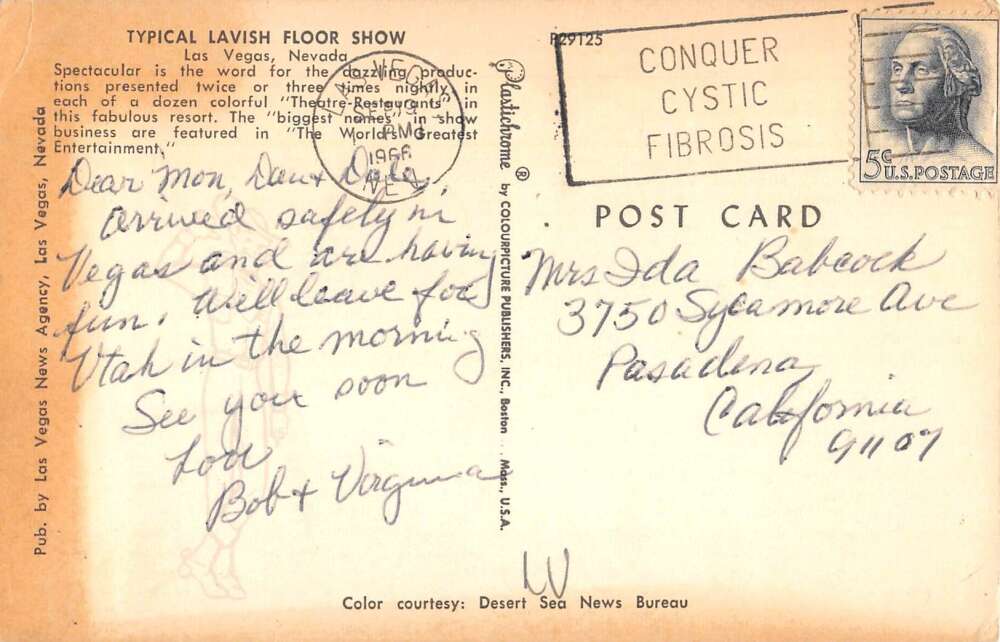 TYPICAL LAVISH FLOOR SHOW
Las Vegas, Nevada
Spectacular is the word for the dazzling produc-
tions presented twice or three times nightly in
each of a dozen colorful "Theatre-Restaurants" in
this fabulous resort. The "biggest names" in show
business are featured in "The World's Greatest
Entertainment."
Dear Mom, Dan & Dale,
Arrived safely in
Vegas and are having
fun. Will leave for
Utah in the morning
See you soon
Love
Bob & Virginia
Pub. by Las Vegas News Agency, Las Vegas, Nevada
LAS VEGAS
SEP 9
PM
1966
NEV
P29125
CONQUER
CYSTIC
FIBROSIS
5c U.S. POSTAGE
Plastichrome ® by COLOURPICTURE PUBLISHERS, INC., Boston Mass., U.S.A.
POST CARD
Mrs Ida Babcock
3750 Sycamore Ave
Pasadena
California
91107
LV
Color courtesy: Desert Sea News Bureau